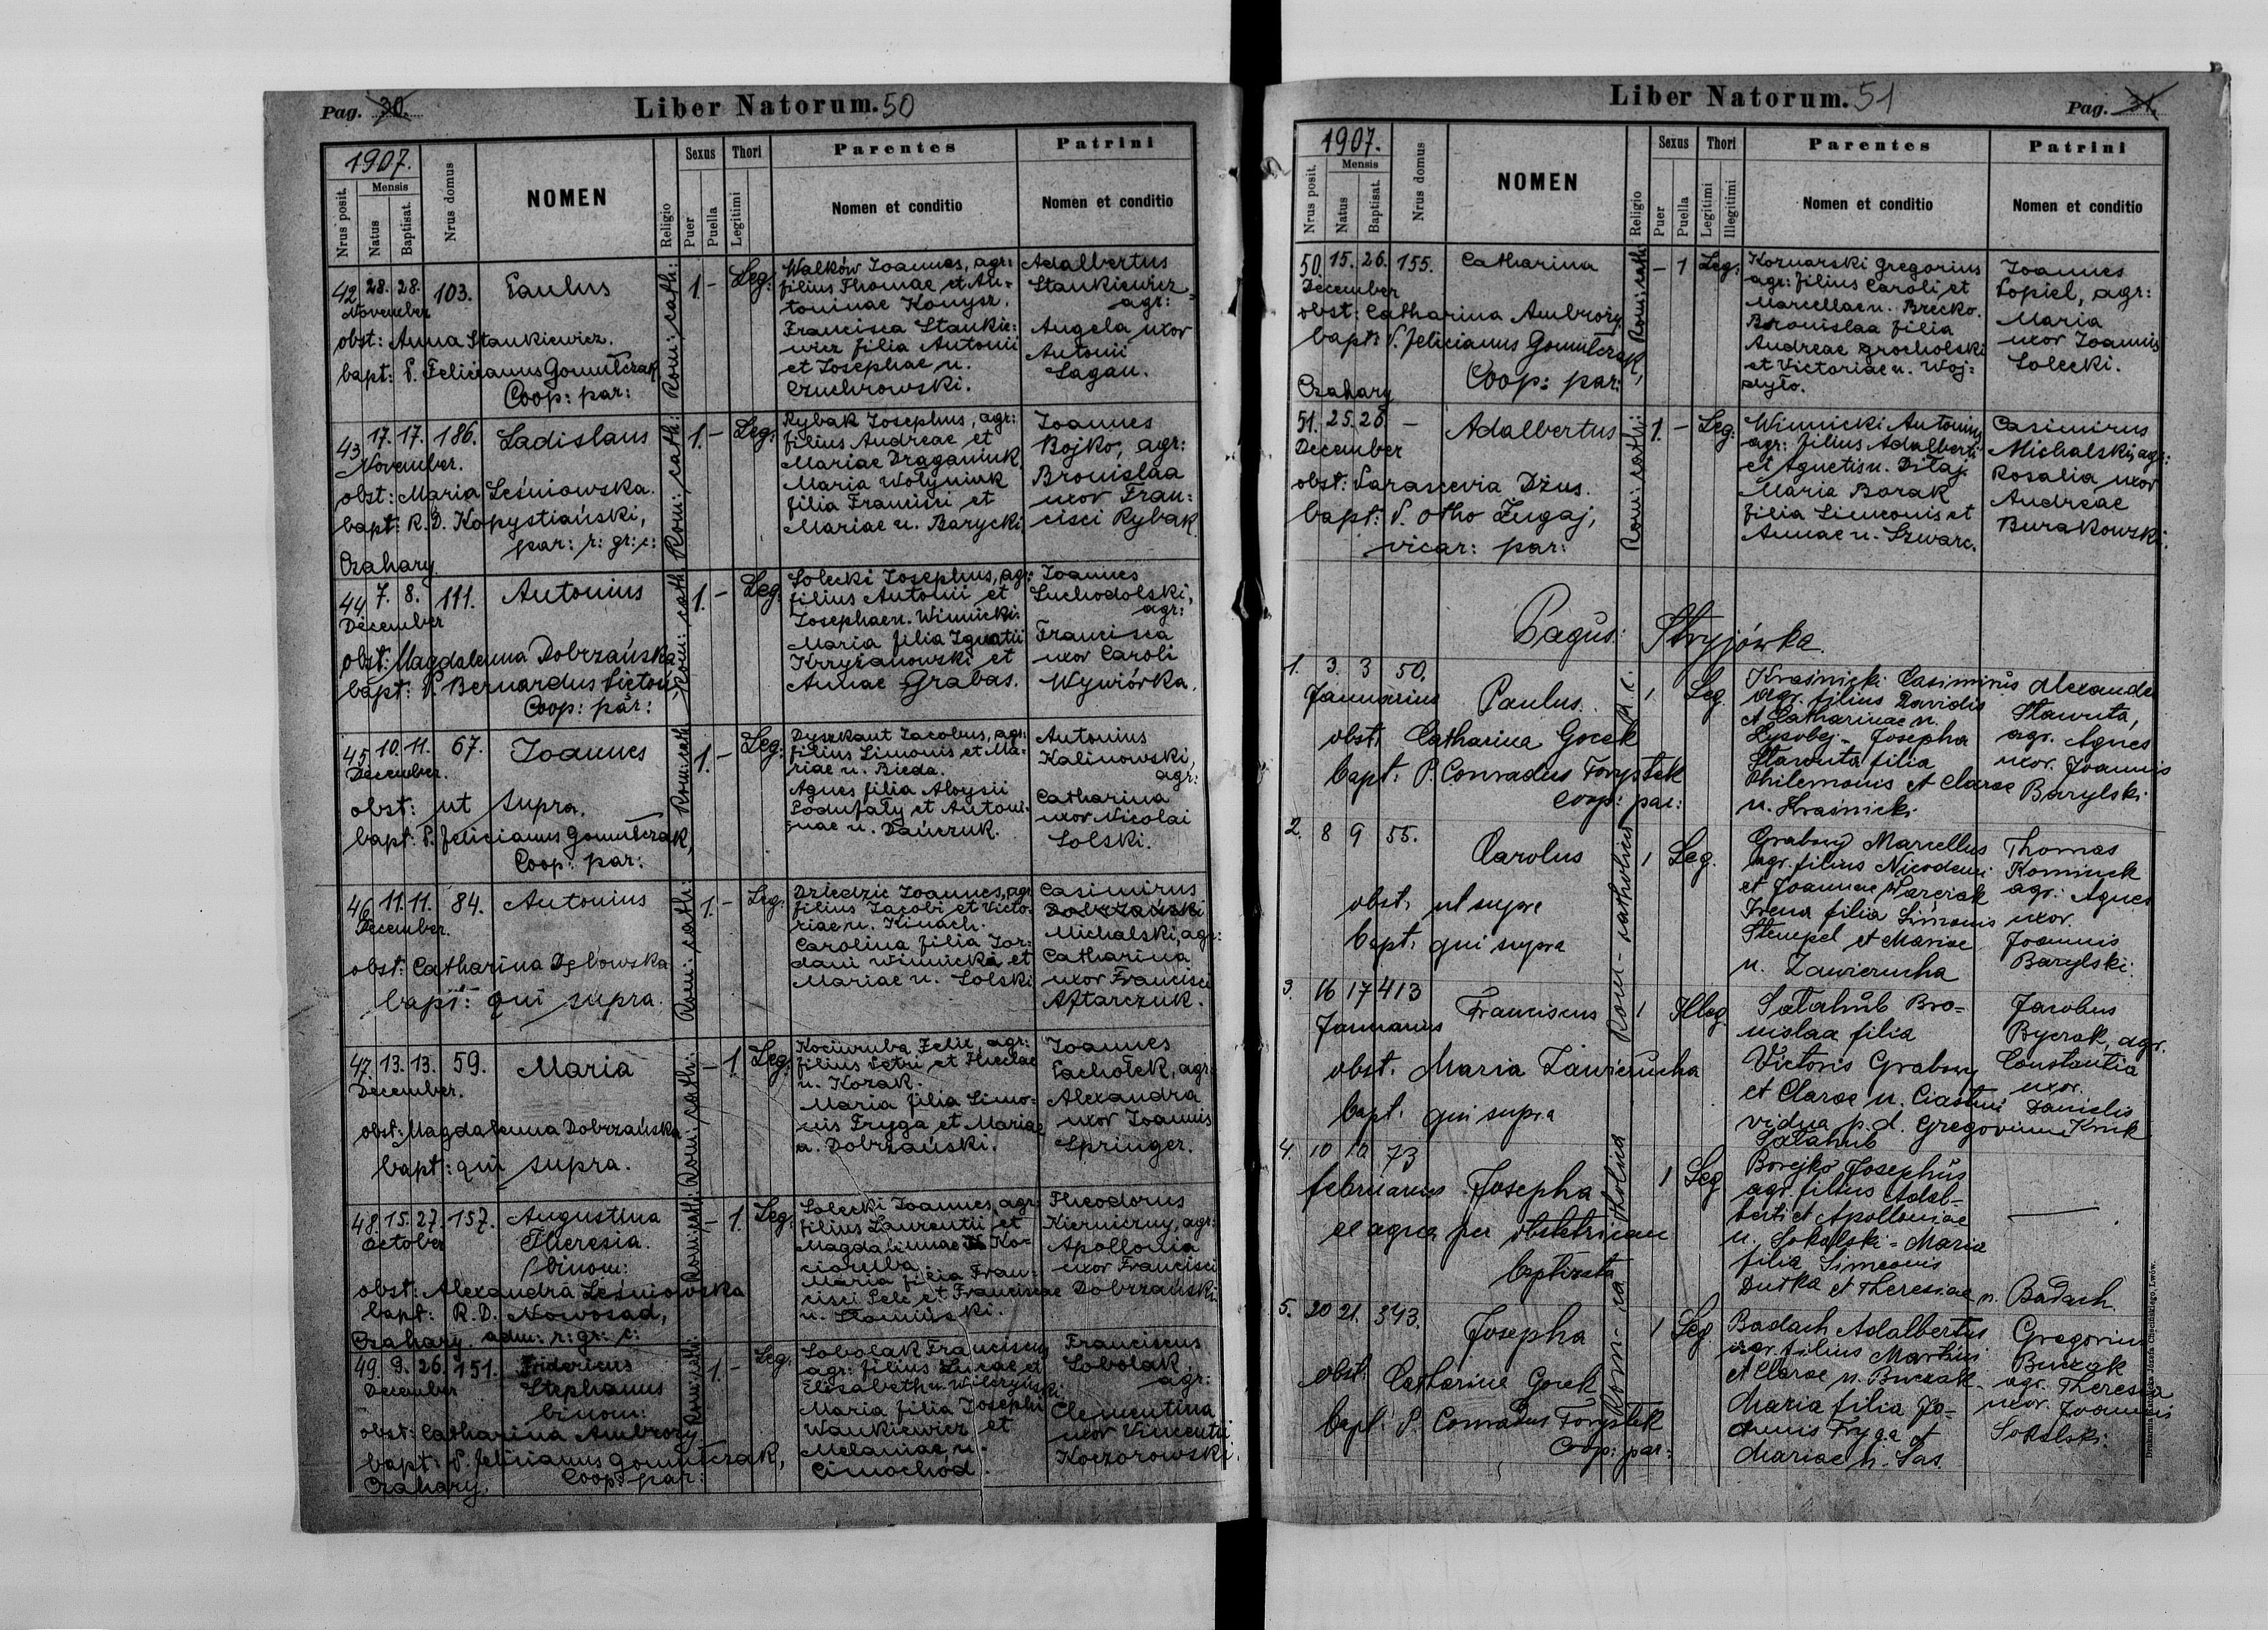 Pag. 30.
Liber Natorum. 50
1907.
Nrus posit.
Mensis
Natus
Baptisat.
Nrus domus
NOMEN
Religio
Sexus
Puer
Puella
Thori
Legitimi
Parentes
Nomen et conditio
Patrini
Nomen et conditio
42 28. 28. 103. Paulus Rom: cath: 1. - Leg:
November
obst: Anna Stankiewicz.
bapt: P. Felicianus Gomułczak
Coop: par:
Walków Joannes, agr:
filius Thomae et An-
toninae Konysz.
Francisca Stankie-
wicz filia Antonii
et Josephae n.
Czuchrowski.
Adalbertus
Stankiewicz
agr:
Angela uxor
Antonii
Sagan.
43 17. 17. 186. Ladislaus Rom: cath: 1. - Leg:
November.
obst: Maria Leśniowska.
bapt: R. D. Kopystiański,
par: r: gr: c:
Rybak Josephus, agr:
filius Andreae et
Mariae Draganiuk
Maria Wołyniuk
filia Francisci et
Mariae n. Barycki
Joannes
Bojko, agr:
Bronislaa
uxor Fran:
cisci Rybak
Czahary
44 7. 8. 111. Antonius Rom: cath. 1. - Leg:
December
obst: Magdalenna Dobrzańska
bapt: P. Bernardus
Coop: par:
Solecki Josephus, agr:
filius Antonii et
Josephae n. Winnicki.
Maria filia Ignatii
Krzyżanowski et
Annae Grabas.
Joannes
Suchodolski,
agr:
Francisca
uxor Caroli
Wywiórka.
45 10. 11. 67. Joannes Rom: cath. 1. - Leg:
December.
obst: ut supra.
bapt: P. Felicianus Gomułczak,
Coop: par:
Dyszkant Jacobus, agr:
filius Simonis et Ma-
riae n. Bieda.
Agnes filia Aloysii
Podufały et Antoni-
nae n. Dańczuk.
Antonius
Kalinowski,
agr:
Catharina
uxor Nicolai
Solski.
46 11. 11. 84. Antonius Rom: cath: 1. - Leg:
December.
obst: Catharina Dębowska
bapt: qui supra.
Dziedzic Joannes, agr
filius Jacobi et Victo-
riae n. Kinach.
Carolina filia Jor-
dani Winnicki et
Mariae n. Solski
Casimirus
Dobrzański
Michalski, agr:
Catharina
uxor Francisci
Aftarczuk.
47. 13. 13. 59. Maria Rom: cath: - 1. Leg:
December.
obst: Magdalenna Dobrzańska
bapt: qui supra.
Kociumba Felix, agr:
filius Petri et Theclae
n. Kozak.
Maria filia Simo-
nis Fryga et Mariae
n. Dobrzański.
Joannes
Pachołek, agr:
Alexandra
uxor Joannis
Springer.
48. 15. 27. 157. Augustina Rom: cath: - 1. Leg:
October
Theresia.
binom:
obst: Alexandra Leśniowska
bapt: R. D. Nowosad,
adm: r: gr: c:
Solecki Joannes, agr:
filius Laurentii et
Magdalennae Ko-
ciumba.
Maria filia Fran-
cisci Pelc et Franciscae
n. Słomiński.
Theodorus
Kierniczny, agr:
Apollonia
uxor Francisci
Dobrzański
Czahary
49. 9. 26. 151. Fridericus Rom: cath: 1. - Leg:
December
Stephanus
binom:
obst: Catharina Ambroży.
bapt: P. Felicianus Gomułczak,
Coop: par:
Czahary.
Sobolak Franciscus
agr: filius Lucae et
Elisabeth n. Wilczyński.
Maria filia Josephi
Wankiewicz et
Melaniae n.
Cimochód.
Franciscus
Sobolak
agr:
Clementina
uxor Vincentii
Koczorowski.
Liber Natorum. 51
Pag. 31.
1907.
Nrus posit.
Mensis
Natus
Baptisat.
Nrus domus
NOMEN
Religio
Sexus
Puer
Puella
Thori
Legitimi
Illegitimi
Parentes
Nomen et conditio
Patrini
Nomen et conditio
50. 15. 26. 155. Catharina Rom: cath: - 1 Leg:
December
obst: Catharina Ambroży
bapt: P. Felicianus Gomułczak,
Coop: par:
Czahary
Koznarski Gregorius
agr: filius Caroli et
Marcellae n. Brecko.
Bronislaa filia
Andreae Grocholski
et Victoriae n. Woj-
Joannes
Popiel, agr:
Maria
uxor Joannis
Solecki.
51. 25. 26. - Adalbertus Rom: cath: 1. - Leg:
December
obst: Parascevia Dżus.
bapt: P. Otho Żugaj,
vicar: par:
Winnicki Antonius
agr: filius Adalberti
et Agnetis n. Ditaj.
Maria Borak
filia Simeonis et
Annae n. Szwarc.
Casimirus
Michalski, agr:
Rosalia uxor
Andreae
Burakowski.
Pagus: Stryjówka.
1. 3. 3 50. Paulus. r. c. 1 Leg.
Januarius
obst. Catharina Gocek
bapt. P. Conradus Forystek
Coop: par:
Kraśnicki Casimirus
agr. filius Davidis
et Catharinae n.
Lysobej - Josepha
Stawnta filia
Philemonis et Clarae
n. Kraśnicki
Alexander
Stawnta,
agr. Agnes
uxor. Joannis
Barylski
2. 8 9 55. Carolus Rom-catholica 1 Leg.
obst. ut supra
bapt. qui supra
Grabowy Marcellus
agr. filius Nicodemi
et Joannae Warciak
Irena filia Simonis
Stempel et Mariae
n. Zawierucha
Thomas
Kominek
agr. Agnes
uxor.
Joannis
Barylski.
3. 16 17 413 Franciscus 1 Illeg.
Januarius
obst. Maria Zawierucha
bapt. qui supra
Sałahub Bro-
nislaa filia
Victoris Grabowy
et Clarae n. Ciastun
vidua p. d. Gregorium
Sałahub
Jacobus
Byczak, agr.
Constantia
uxor.
Danielis
Kruk
4. 10 10 73 Josepha Rom-catholica 1 Leg
februarius
ex aqua per obstetricem
baptizata
Borejko Josephus
agr. filius Adal-
berti et Apolloniae
n. Sokalski - Maria
filia Simeonis
Dutka et Theresiae n. Badach
5. 20 21. 343. Josepha 1 Leg
obst. Catharina Gocek
bapt. P. Conradus Forystek
Coop: par:
Badach Adalbertus
agr. filius Martini
et Clarae n. Buczak.
Maria filia Jo-
annis Fryga et
Mariae n. Sas.
Gregorius
Buczak
agr. Theresia
uxor. Joannis
Sokalski.
Drukarnia Katolicka Józefa Chęcińskiego, Lwów.